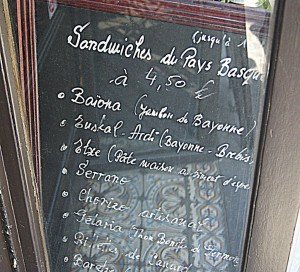 (jusqu'à 1
Sandwiches du Pays Basqu
à 4,50 €
Baiona (Jambon de Bayonne)
Euskal-Ardi (Bayonne-Brebis
Etxe (Pâté maison au piment d'espe
Serrano
Chorizo artisanal
Retalia Thon Bonite et
de Canard